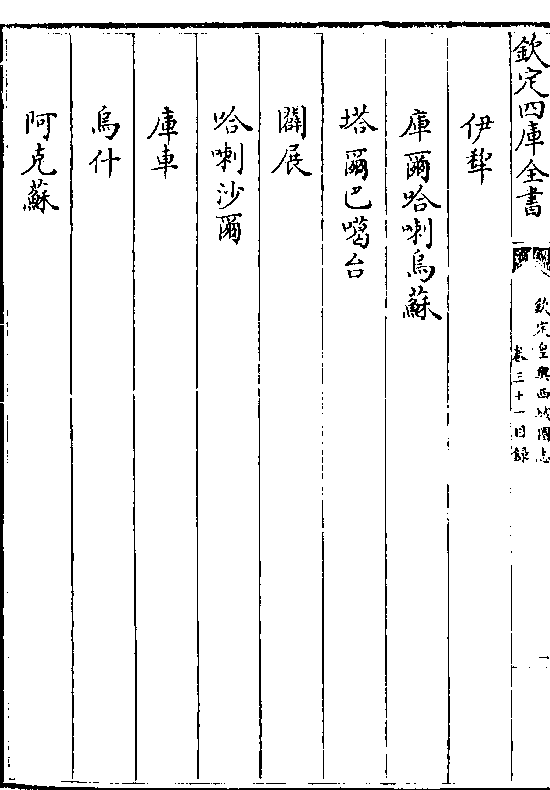 欽定四庫全書
欽定皇輿西域圖志
卷三十一目錄
一
伊犂
庫爾哈喇烏蘇
塔爾巴噶台
闢展
哈喇沙爾
庫車
烏什
阿克蘇